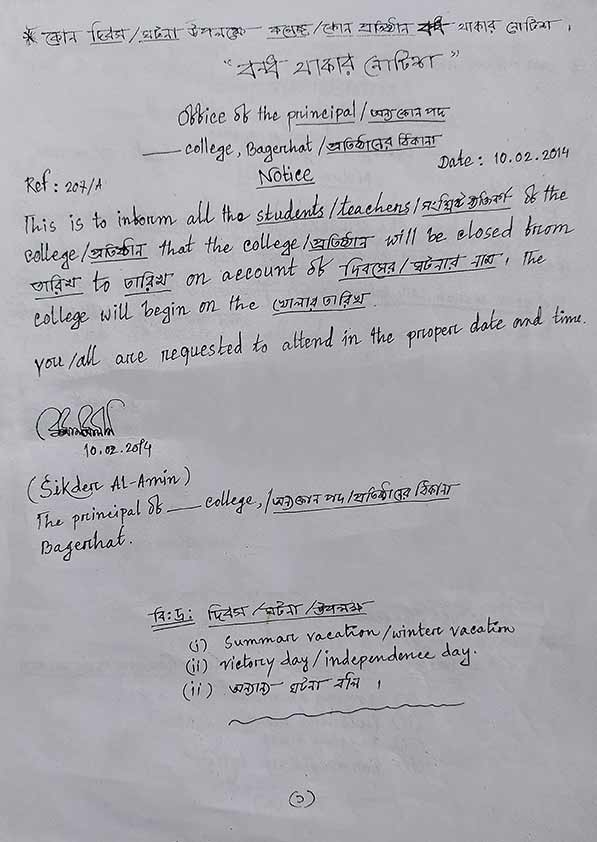 * কোন দিবস/ঘটনা উপলক্ষে কলেজ/কোন প্রতিষ্ঠান বন্ধ থাকার নোটিশ।
"বন্ধ থাকার নোটিশ"
Office of the principal/অন্যকোন পদ
___ college, Bagerhat/প্রতিষ্ঠানের ঠিকানা
Date: 10.02.2014
Notice
Ref: 207/A
This is to inform all the students/teachers/সংশ্লিষ্ট ব্যক্তিবর্গ of the
college/প্রতিষ্ঠান that the college/প্রতিষ্ঠান will be closed from
তারিখ to তারিখ on account of দিবসের/ঘটনার নাম। The
college will begin on the খোলার তারিখ.
you/all are requested to attend in the proper date and time.
10.02.2014
(Sikder Al-Amin)
The principal of ___ college,/অন্যকোন পদ/প্রতিষ্ঠানের ঠিকানা
Bagerhat.
বি:দ্র: দিবস/ঘটনা/উপলক্ষ
(i) Summar vacation/winter vacation
(ii) victory day/independence day.
(ii) অন্যান্য ঘটনা বলি।
(১)